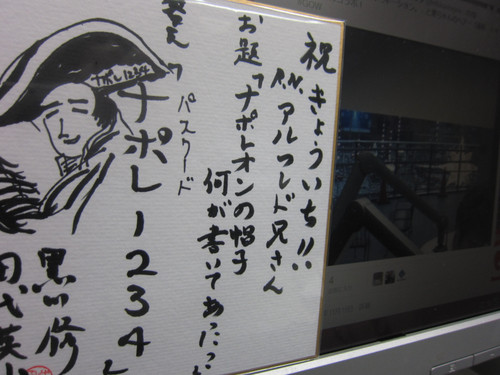 祝きょういち!!
R.N.アルフレド兄さん
お題「ナポレオンの帽子
何が書いてあった
答え「パスワード
ナポレ1234」
ナポレ1234
黒川修
田代英